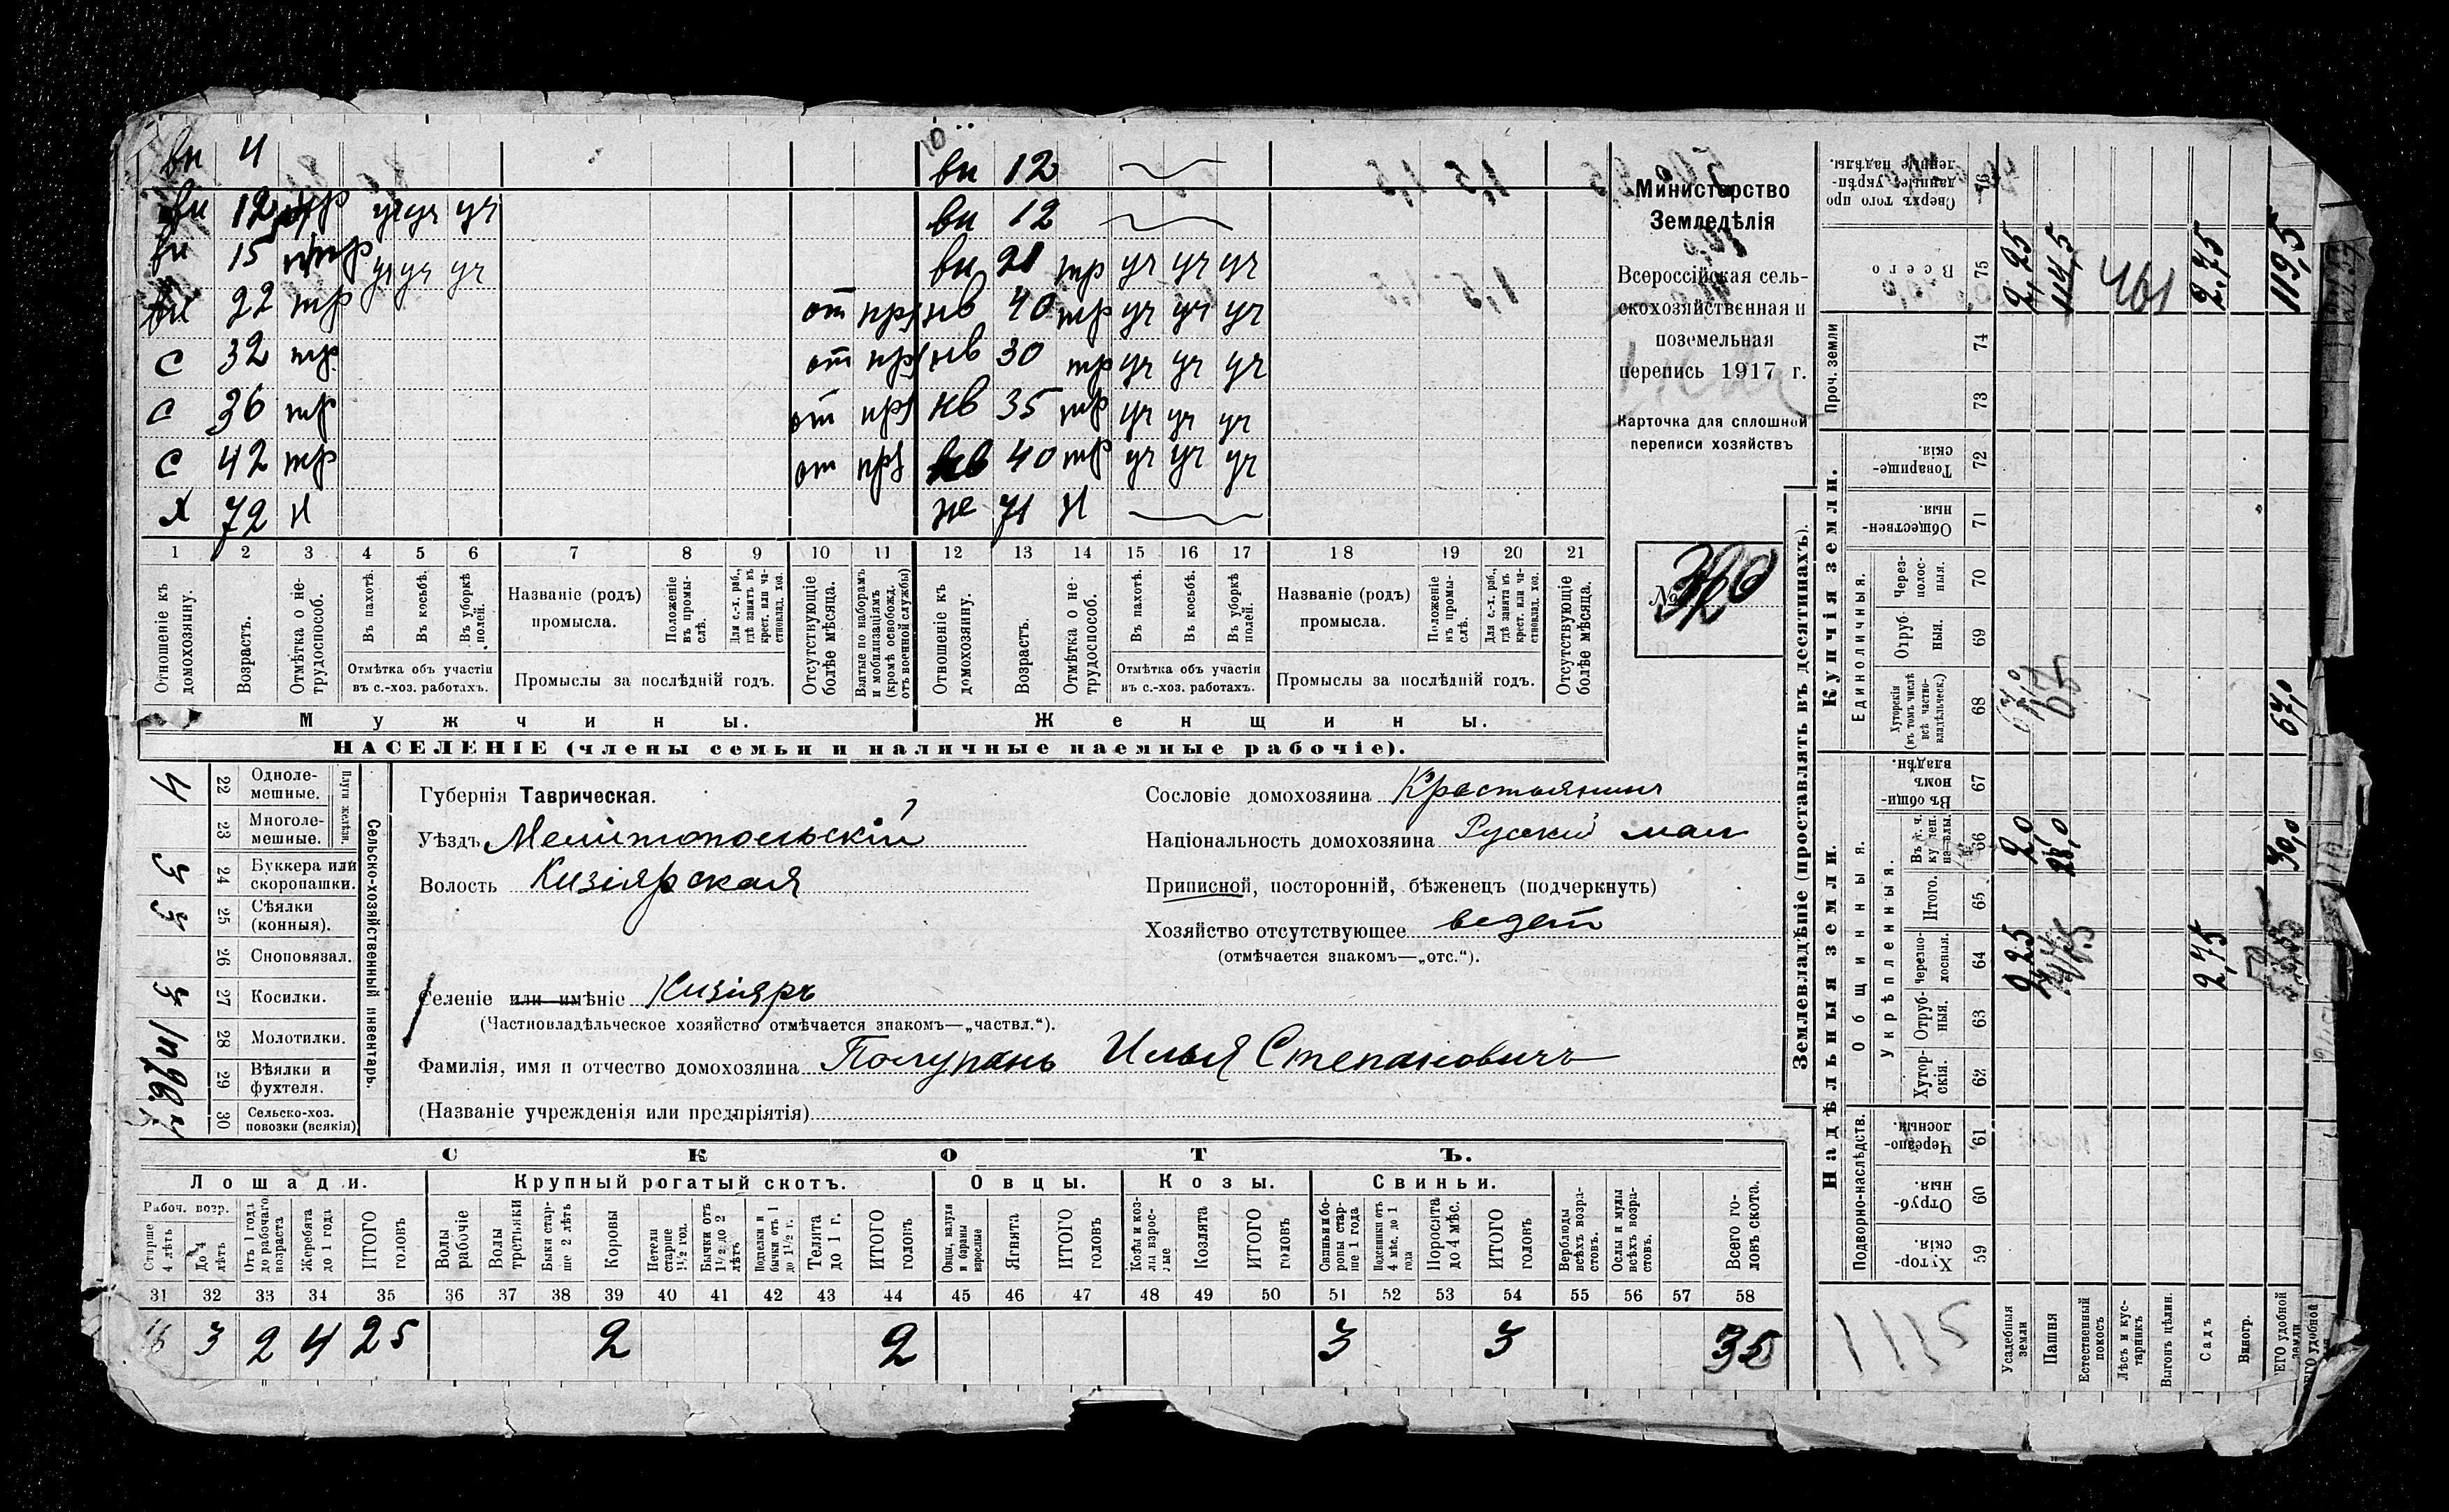 вн 4 вн 12
вн 12 уч уч уч вн 12
вн 15 уч уч уч вн 21 тр уч уч уч
вн 22 тр от нв 40 тр уч уч уч
с 32 тр от нв 30 тр уч уч уч
с 36 тр от нв 35 тр уч уч уч
с 42 тр от нв 40 тр уч уч уч
х 72 н же 71 н
1 2 3 4 5 6 7 8 9 10 11 12 13 14 15 16 17 18 19 20 21
Отношеніе къ домохозяину.
Возрастъ.
Отмѣтка о не-трудоспособ.
Въ пахотѣ.
Въ косьбѣ.
Въ уборкѣ полей.
Отмѣтка объ участіи въ с.-хоз. работахъ.
Названіе (родъ) промысла.
Положеніе въ промы-слѣ.
Для с.-х. раб., гдѣ занятъ въ крест. или ча-стновлад. хоз.
Промыслы за послѣдній годъ.
Отсутствующіе болѣе мѣсяца.
Взятые по наборамъ и мобилизаціямъ (кромѣ освобожд. отъ военной службы)
Отношеніе къ домохозяину.
Возрастъ.
Отмѣтка о не-трудоспособ.
Въ пахотѣ.
Въ косьбѣ.
Въ уборкѣ полей.
Отмѣтка объ участіи въ с.-хоз. работахъ.
Названіе (родъ) промысла.
Положеніе въ промы-слѣ.
Для с.-х. раб., гдѣ занята въ крест. или ча-стновлад. хоз.
Промыслы за послѣдній годъ.
Отсутствующіе болѣе мѣсяца.
Мужчины. Женщины.
НАСЕЛЕНІЕ (члены семьи и наличные наемные рабочіе).
Министерство
Земледѣлія
Всероссійская сель-
скохозяйственная и
поземельная
перепись 1917 г.
Карточка для сплошной
переписи хозяйствъ
№
Сельско-хозяйственный инвентарь.
Плуги желѣзн.
4 22 Одноле-мешные.
23 Многоле-мешные.
3 24 Буккера или скоропашки.
3 25 Сѣялки (конныя).
26 Сноповязал.
3 27 Косилки.
28 Молотилки.
29 Вѣялки и фухтеля.
30 Сельско-хоз. повозки (всякія)
Губернія Таврическая.
Уѣздъ Мелитопольскій
Волость Кизіярская
Селеніе или имѣніе Кизіяръ
(Частновладѣльческое хозяйство отмѣчается знакомъ—„частвл.“).
Фамилія, имя и отчество домохозяина Полупанъ Илья Степановичъ
(Названіе учрежденія или предпріятія)
Сословіе домохозяина Крестьянинъ
Національность домохозяина Русскій мал
Приписной, посторонній, бѣженец (подчеркнуть)
Хозяйство отсутствующее ведет
(отмѣчается знакомъ—„отс.“).
СКОТЪ.
Лошади. Крупный рогатый скотъ. Овцы. Козы. Свиньи.
Рабоч. возр.
Старше 4 лѣтъ
До 4 лѣтъ
Отъ 1 года до рабочаго возраста
Жеребята до 1 года
ИТОГО головъ
Волы рабочіе
Волы третьяки
Быки стар-ше 2 лѣтъ
Коровы
Нетели старше 1½ год.
Бычки отъ 1½ до 2 лѣтъ
Подтелки и бычки отъ 1 до 1½ г.
Телята до 1 г.
ИТОГО головъ
Овцы, валухи и бараны взрослые
Ягнята
ИТОГО головъ
Козы и коз-лы взрос-лые
Козлята
ИТОГО головъ
Свиньи и бо-ровы стар-ше 1 года
Подсвинки отъ 4 мѣс. до 1 года
Поросята до 4 мѣс.
ИТОГО головъ
Верблюды всѣхъ возра-стовъ.
Ослы и мулы всѣхъ возра-стовъ.
Всего го-ловъ скота.
31 32 33 34 35 36 37 38 39 40 41 42 43 44 45 46 47 48 49 50 51 52 53 54 55 56 57 58
16 3 2 4 25 2 2 3 3 35
Землевладѣніе (проставлять въ десятинахъ).
Надѣльныя земли. Купчія земли.
Подворно-наслѣдств.
Общинныя.
Укрѣпленныя.
Единоличныя.
Проч. земли
Хутор-скія. 59
Отруб-ныя. 60
Черезпо-лосныя. 61
Хутор-скія. 62
Отруб-ныя. 63
Черезпо-лосныя. 64
Итого. 65
66
Въ общи-номъ владѣн. 67
Хуторскія (въ томъ числѣ всѣ частно-владѣльческ.) 68
Отруб-ныя. 69
Через-полос-ныя. 70
Обществен-ныя. 71
Товарище-скія. 72
73
74
Всего 75
Сверхъ того про данные укрѣп-ленные надѣлы. 76
Усадебныя земли 2,25 2,0 2,25
Пашня 28,0 114,5
Естественный покосъ
Лѣсъ и кус-тарникъ
Выгонъ цѣлин.
Садъ 2,75 2,75
Виногр.
30,0 67,0 119,5
1115